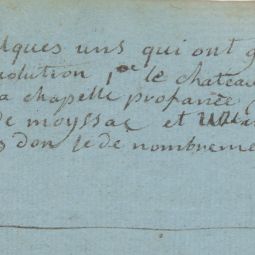 lques uns qui ont g
volution pr le chateau
a chapelle profanée
de moyssac et
s don je de nombreme